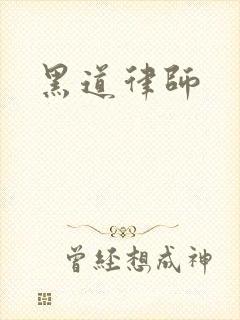 黑道律師
曾經想成神